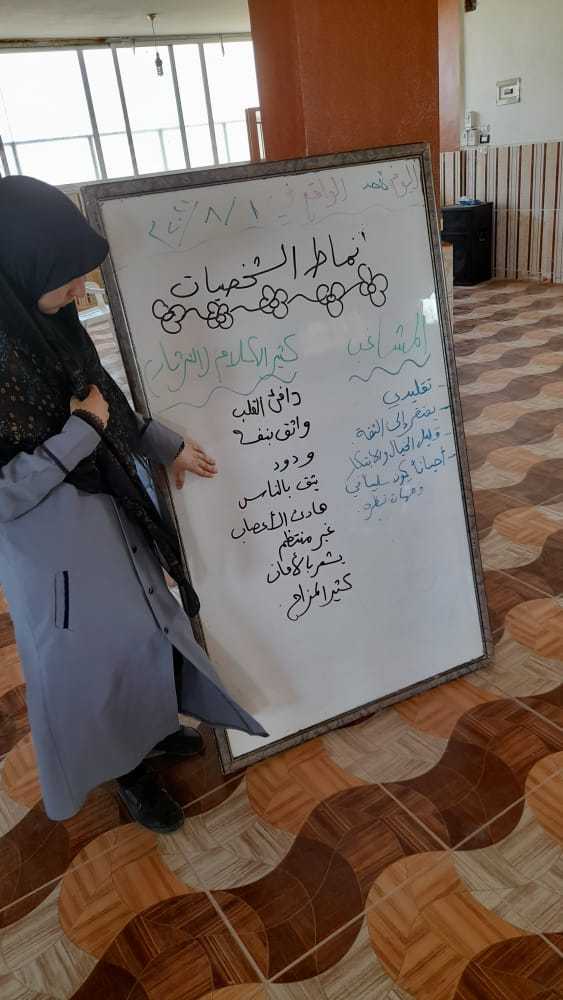 اليوم الواقع في ١ / ٨ /
أنماط الشخصيات
المشاغب
- تقليدي
- يفتقر إلى الثقة
- قليل الخيال والابتكار
- أحياناً يكون سلبياً في
وجهات نظره
كثير الكلام (الثرثار)
دافئ القلب
واثق بنفسه
ودود
يثق بالناس
هادئ الأعصاب
غير منتظم
يشعر بالأمان
كثير المزاح